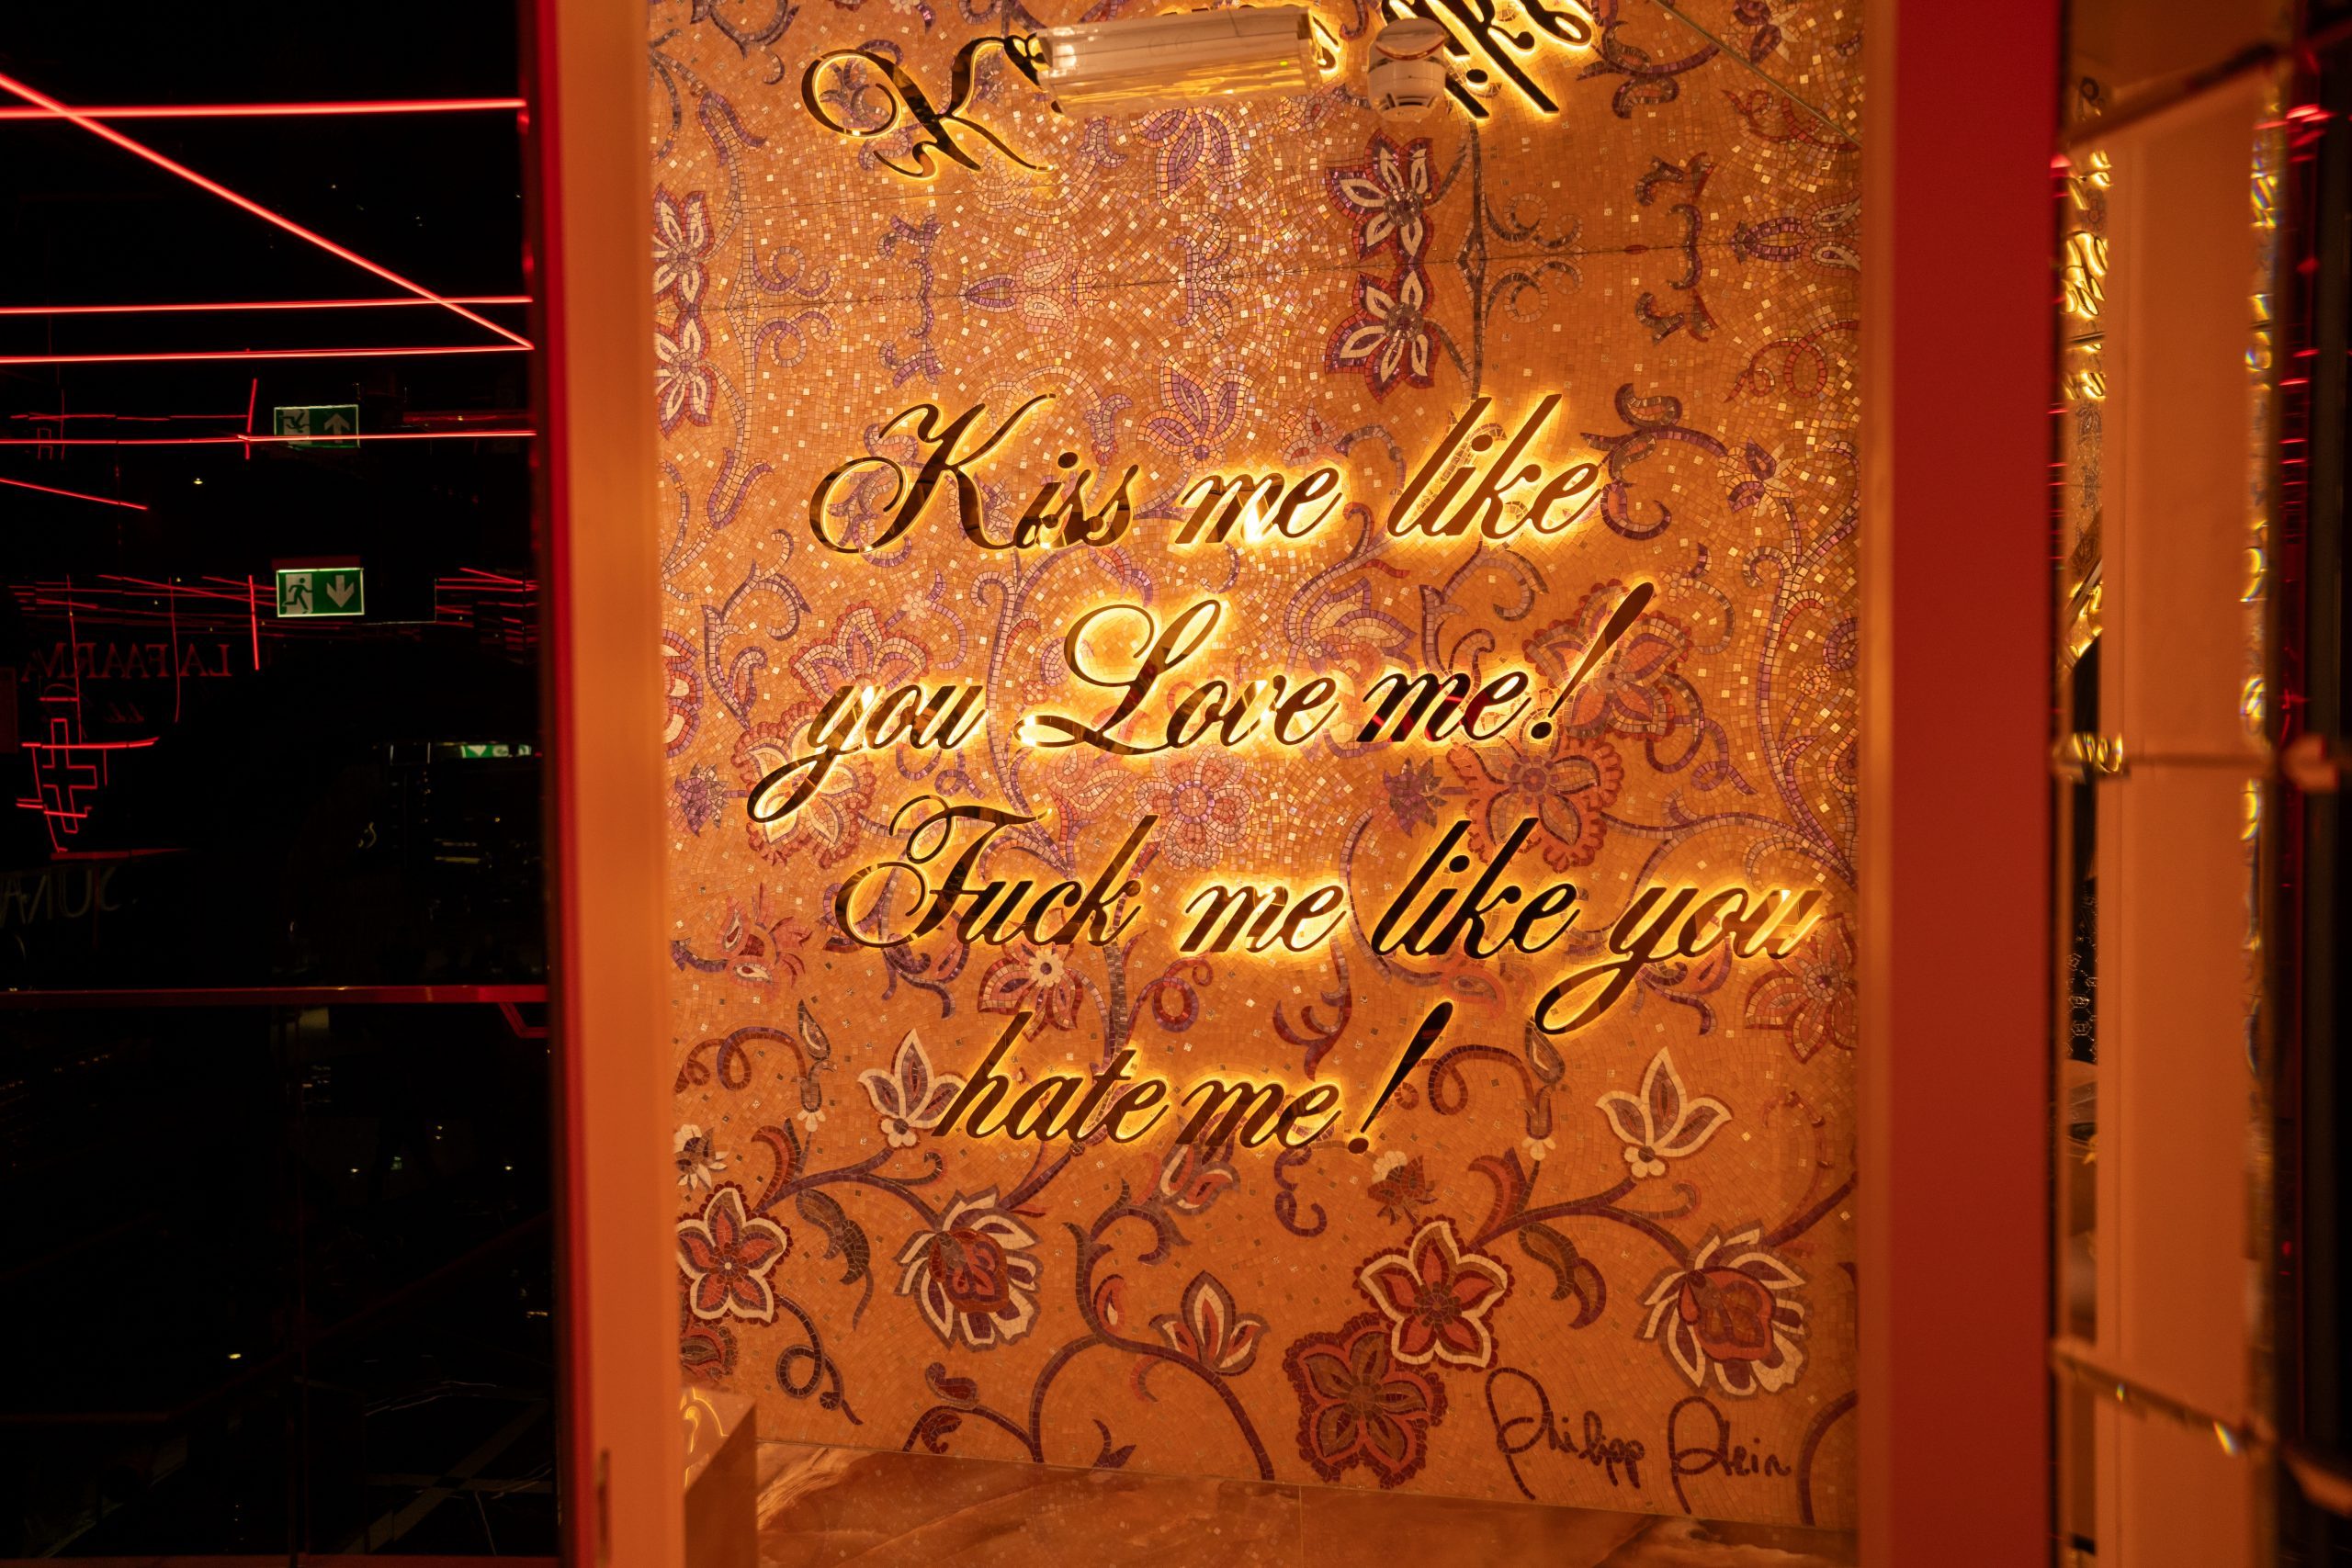 Kiss me like
you Love me!
Fuck me like you
hate me!
Philipp Plein